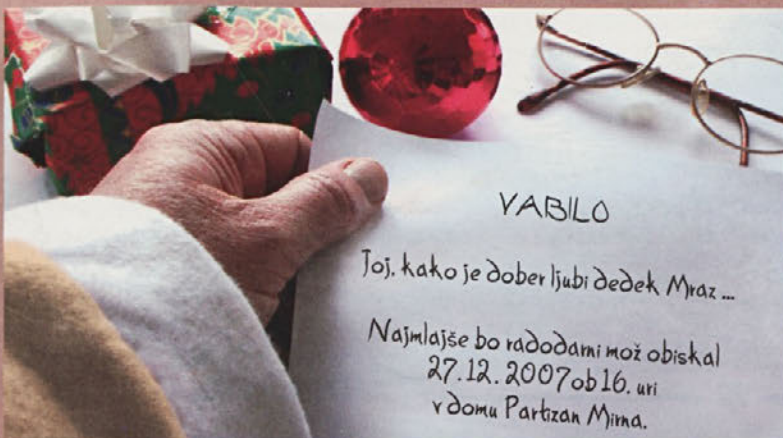 VABILO
Joj, kako je dober ljubi dedek Mraz ...
Najmlajše bo radodarni mož obiskal
27.12.2007 ob 16. uri
v domu Partizan Mirna.